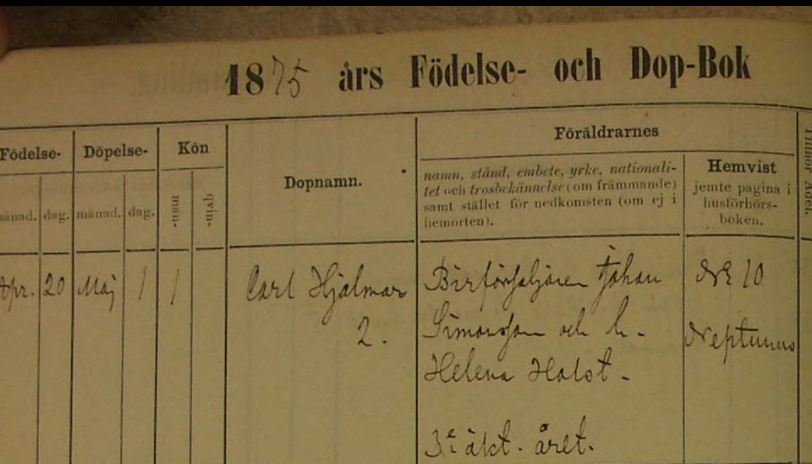 1875 års Födelse- och Dop-Bok
Födelse-
Döpelse-
Kön
Dopnamn.
Föräldrarnes
månad.
dag.
månad.
dag.
man-
qvin-
namn, stånd, embete, yrke, nationali-
tet och trosbekännelse (om främmande)
samt stället för nedkomsten (om ej i
hemorten).
Hemvist
jemte pagina i
husförhörs-
boken.
Apr. 20 Maj 1 1
Carl Hjalmar
2.
Birförsäljaren Johan
Simonsson och h.
Helena Holst.
3e äkt. året.
No 10
Neptunus